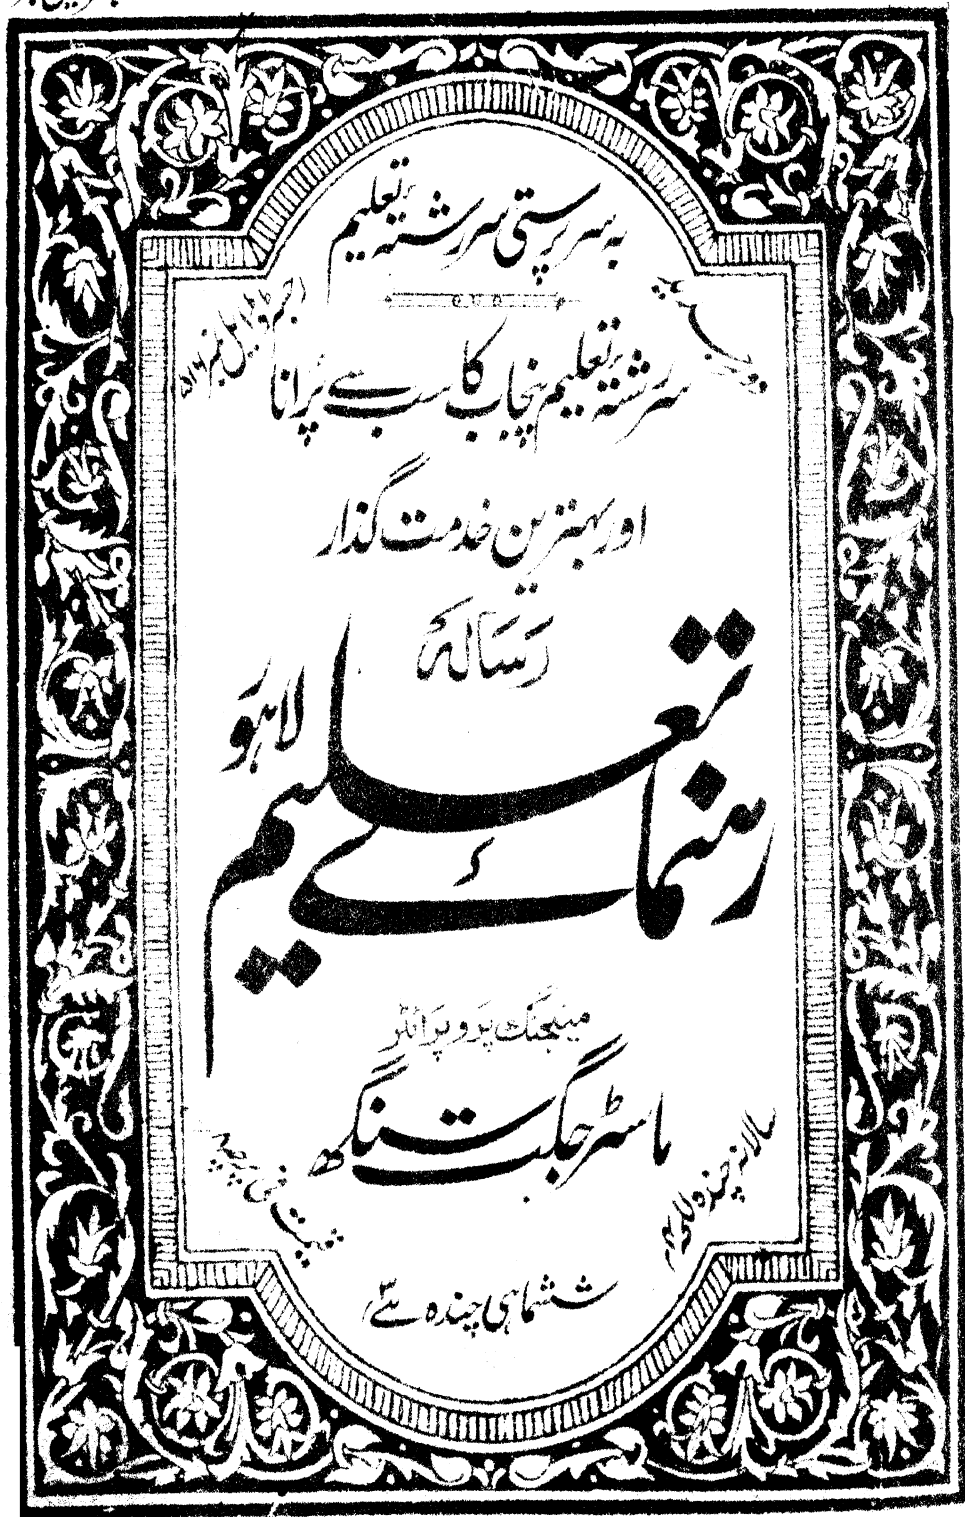 بہ سرپرستی سررشتہ تعلیم
رجسٹرڈ ایل نمبر
سررشتہ تعلیم پنجاب کا سب سے پرانا
اور بہترین خدمت گذار
رسالہ
رہنمائے تعلیم لاہور
مینیجنگ پروپرائٹر
ماسٹر جگت سنگھ
سالانہ چندہ
قیمت فی پرچہ
ششماہی چندہ